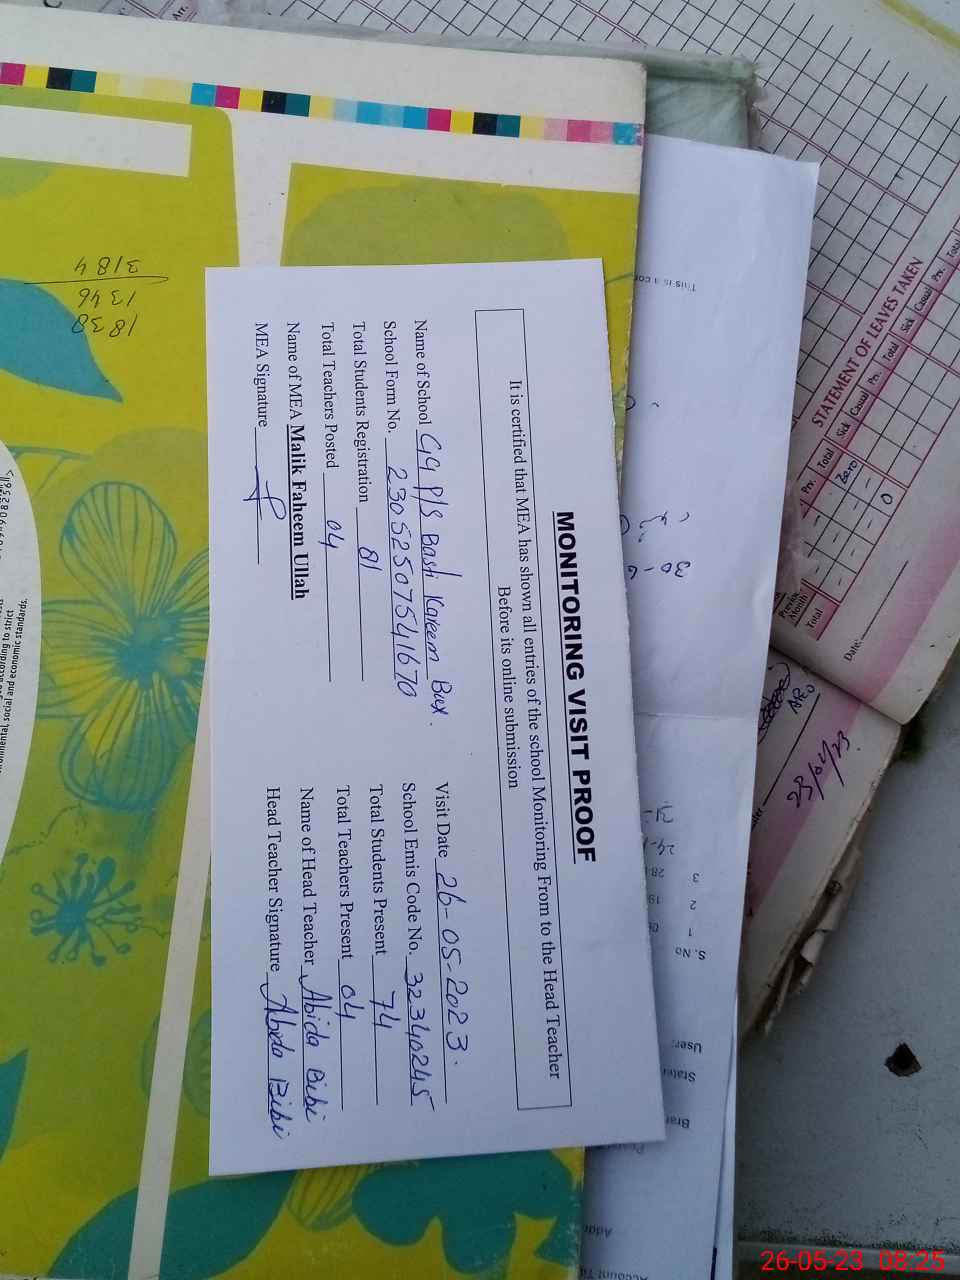 MONITORING VISIT PROOF
It is certified that MEA has shown all entries of the school Monitoring From to the Head Teacher
Before its online submission
Name of School GG P/S Basti Kareem Bux.
Visit Date 26-05-2023.
School Form No. 23052507541670
School Emis Code No. 32340245
Total Students Registration 81
Total Students Present 74
Total Teachers Posted 04
Total Teachers Present 04
Name of MEA Malik Faheem Ullah
Name of Head Teacher Abida Bibi
MEA Signature
Head Teacher Signature Abida Bibi
1838
1346
3184
STATEMENT OF LEAVES TAKEN
Prv. Total Sick Casual Prv. Total Sick Casual Prv. Total
Zero
0
Previous
Month
Total
Date:
AEO
This is a
30-6
S. No
1
2
3
User:
according to strict
social and economic standards.
26-05-23 08:25